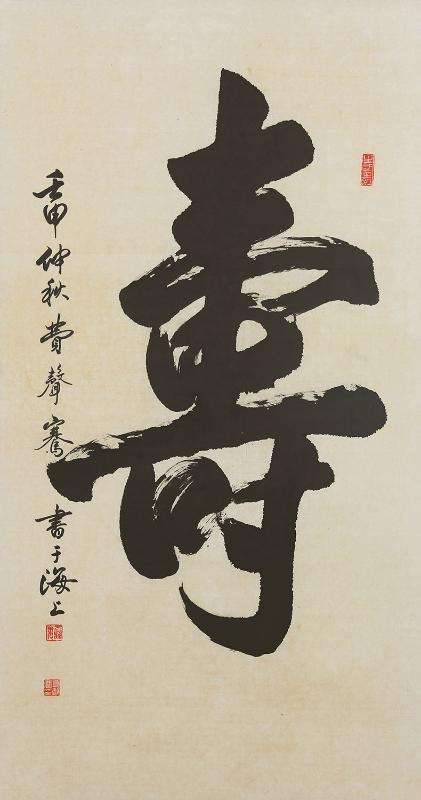 壽
壬申仲秋費聲騫書于海上